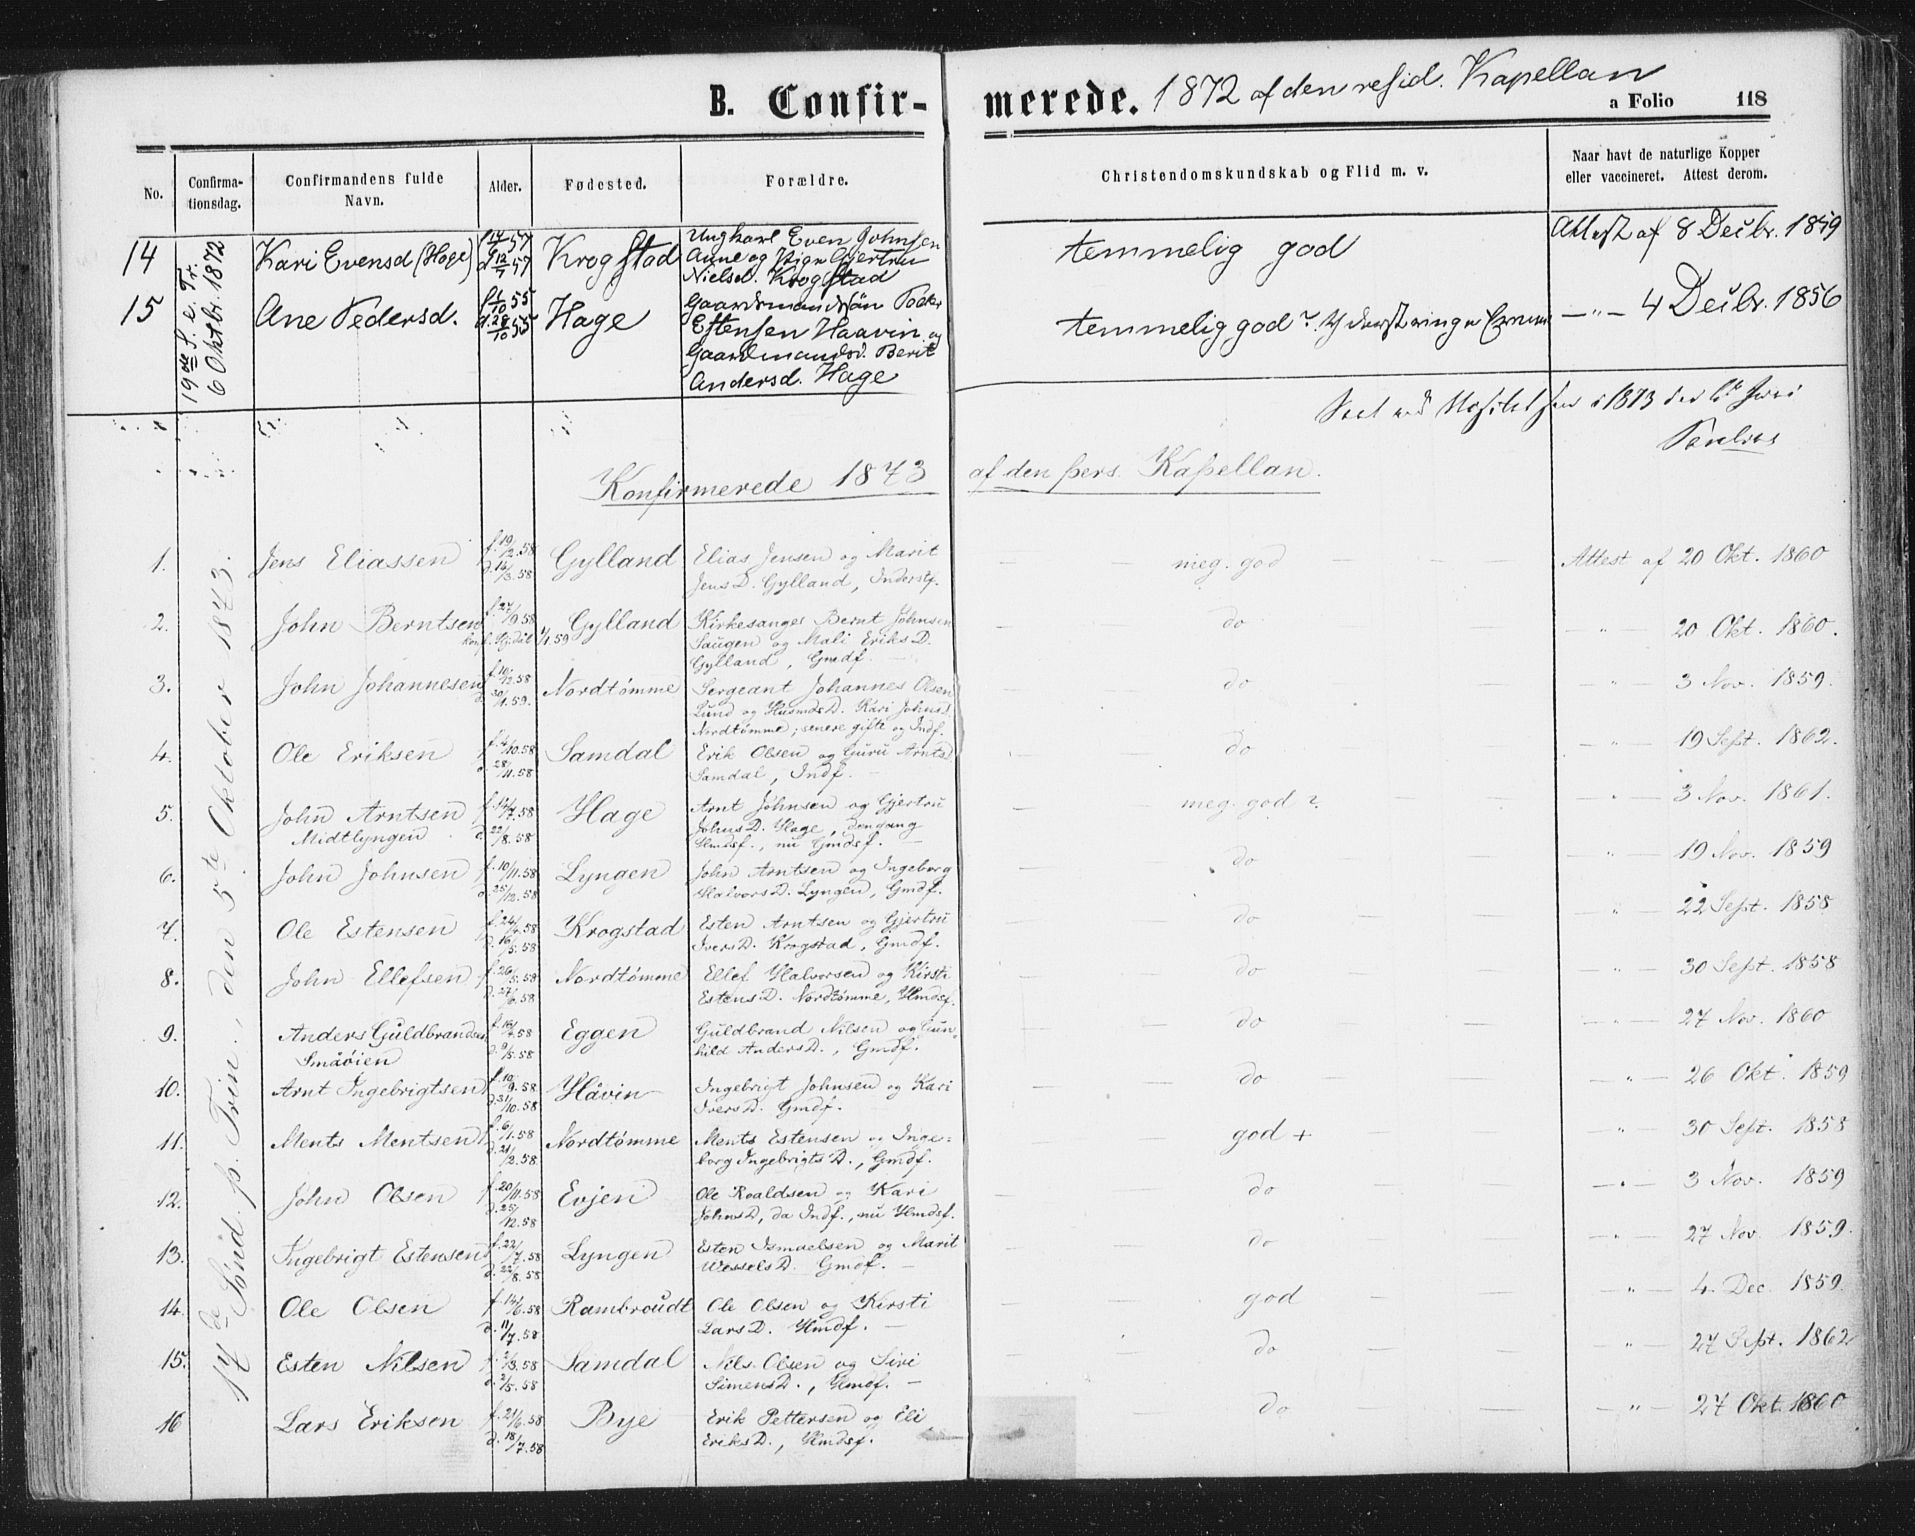 B. Confirmerede. 1872 af den resid. Kapellan
a Folio 118
No. Confirmationsdag. Confirmandens fulde Navn. Alder. Fødested. Forældre. Christendomskundskab og Flid m. v. Naar havt de naturlige Kopper eller vaccineret. Attest derom.
19de S. e. Tr. 6 Oktbr. 1872
14 Kari Evensd (Hage) Krogstad Ungkarl Even Johnsen temmelig god Attest af 8 Decbr. 1859
Aune og Pige Gjertru
Nielsd. Krogstad
15 Ane Pedersd. Hage Gaardmandssøn Peder temmelig god 4 Decbr. 1856
Estensen Haavin og
Gaardmandsd. Berit
Andersd. Hage
Konfirmerede 1873 af den pers. Kapellan.
17de Sönd. p. Trin., den 5te Oktober 1873.
1. Jens Eliassen f. 19/2.58 Gylland Elias Jensen og Marit meg. god Attest af 20 Okt. 1860
d. 14/3.58 Jens D. Gylland, Inderstf.
2. John Berntsen f. 27/9 58 Gylland Kirkesanger Bernt Johnsen do 20 Okt. 1860.
1/1 59 Saugen og Mali Eriks D.
Gylland, Gmdf.
3. John Johannesen f. 10/12.58 Nordtømme Sergeant Johannes Olsen do 3 Nov. 1859.
30/1.59. Lund og Husmds D. Kari Johns D.
Nordtømme; senere gifte og Indf.
4. Ole Eriksen f. 4/10.58 Samdal Erik Olsen og Guru Arnts D. do 19 Sept. 1862.
28/11.58 Samdal, Indf.
5. John Arntsen f. 14/7.58 Hage Arnt Johnsen og Gjertru meg. god ?. 3 Nov. 1861.
Midtlyngen d. 22/8.58 Johns D. Hage, dengang
Hmdsf., nu Gmdsf.
6. John Johnsen f. 10/11.58 Lyngen John Arntsen og Ingeborg do 19 Nov. 1859
d. 25/12.58 Halvors D. Lyngen, Gmdf.
7. Ole Estensen f. 24/4.58 Krogstad Esten Arntsen og Gjertru do 22 Sept. 1858
d. 16/5.58 Ivers D. Krogstad, Gmdf.
8. John Ellefsen f. 26/5.58 Nordtømme Ellef Halvorsen og Kirsti do 30 Sept. 1858
d. 27/6.58 Estens D. Nordtømme, Hmdsf.
9. Anders Guldbrandsen f. 16/4.58 Eggen Guldbrand Nilsen og Gun- do 27 Nov. 1860
Småøien d. 9/5.58 hild Anders D., Gmdf.
10. Arnt Ingebrigtsen f. 10/9.58 Håvin Ingebrigt Johnsen og Kari do 26 Okt. 1859
d. 31/10.58 Ivers D. Gmdf.
11. Ments Mentsen f. 6/1.58 Nordtømme Ments Estensen og Inge- god + 30 Sept. 1858
d. 21/2.58 borg Ingebrigts D., Gmdf.
12. John Olsen f. 20/11.58 Evjen Ole Roaldsen og Kari do 3 Nov. 1859
d. 25/12.58 Johns D, da Indf., nu Hmdsf.
13. Ingebrigt Estensen f. 22/7.58 Lyngen Esten Ismaelsen og Marit do 27 Nov. 1859.
d. 22/8.58 Wessels D. Gmdf.
14. Ole Olsen f. 14/6.58 Rambroudt Ole Olsen og Kirsti god 4. Dec. 1859.
d. 11/7.58 Lars D. Hmdf.
15. Esten Nilsen f. 2/3.58 Samdal Nils Olsen og Siri do 27 Sept. 1862
d. 2/5.58 Simens D., Hmdf.
16 Lars Eriksen f. 21/6.58 Bye Erik Pettersen og Eli do 27 Okt. 1860
d. 18/7.58 Eriks D., Hmdsf.